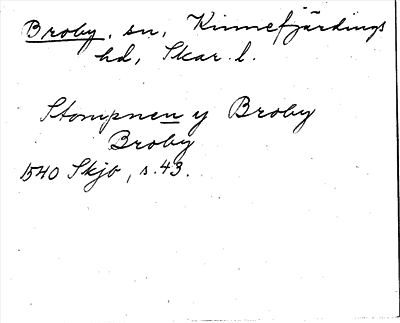 Broby, sn, Kinnefjärdings
hd, Skar. l.
Stompnen y Broby
Broby
1540 Skjb, s. 43.